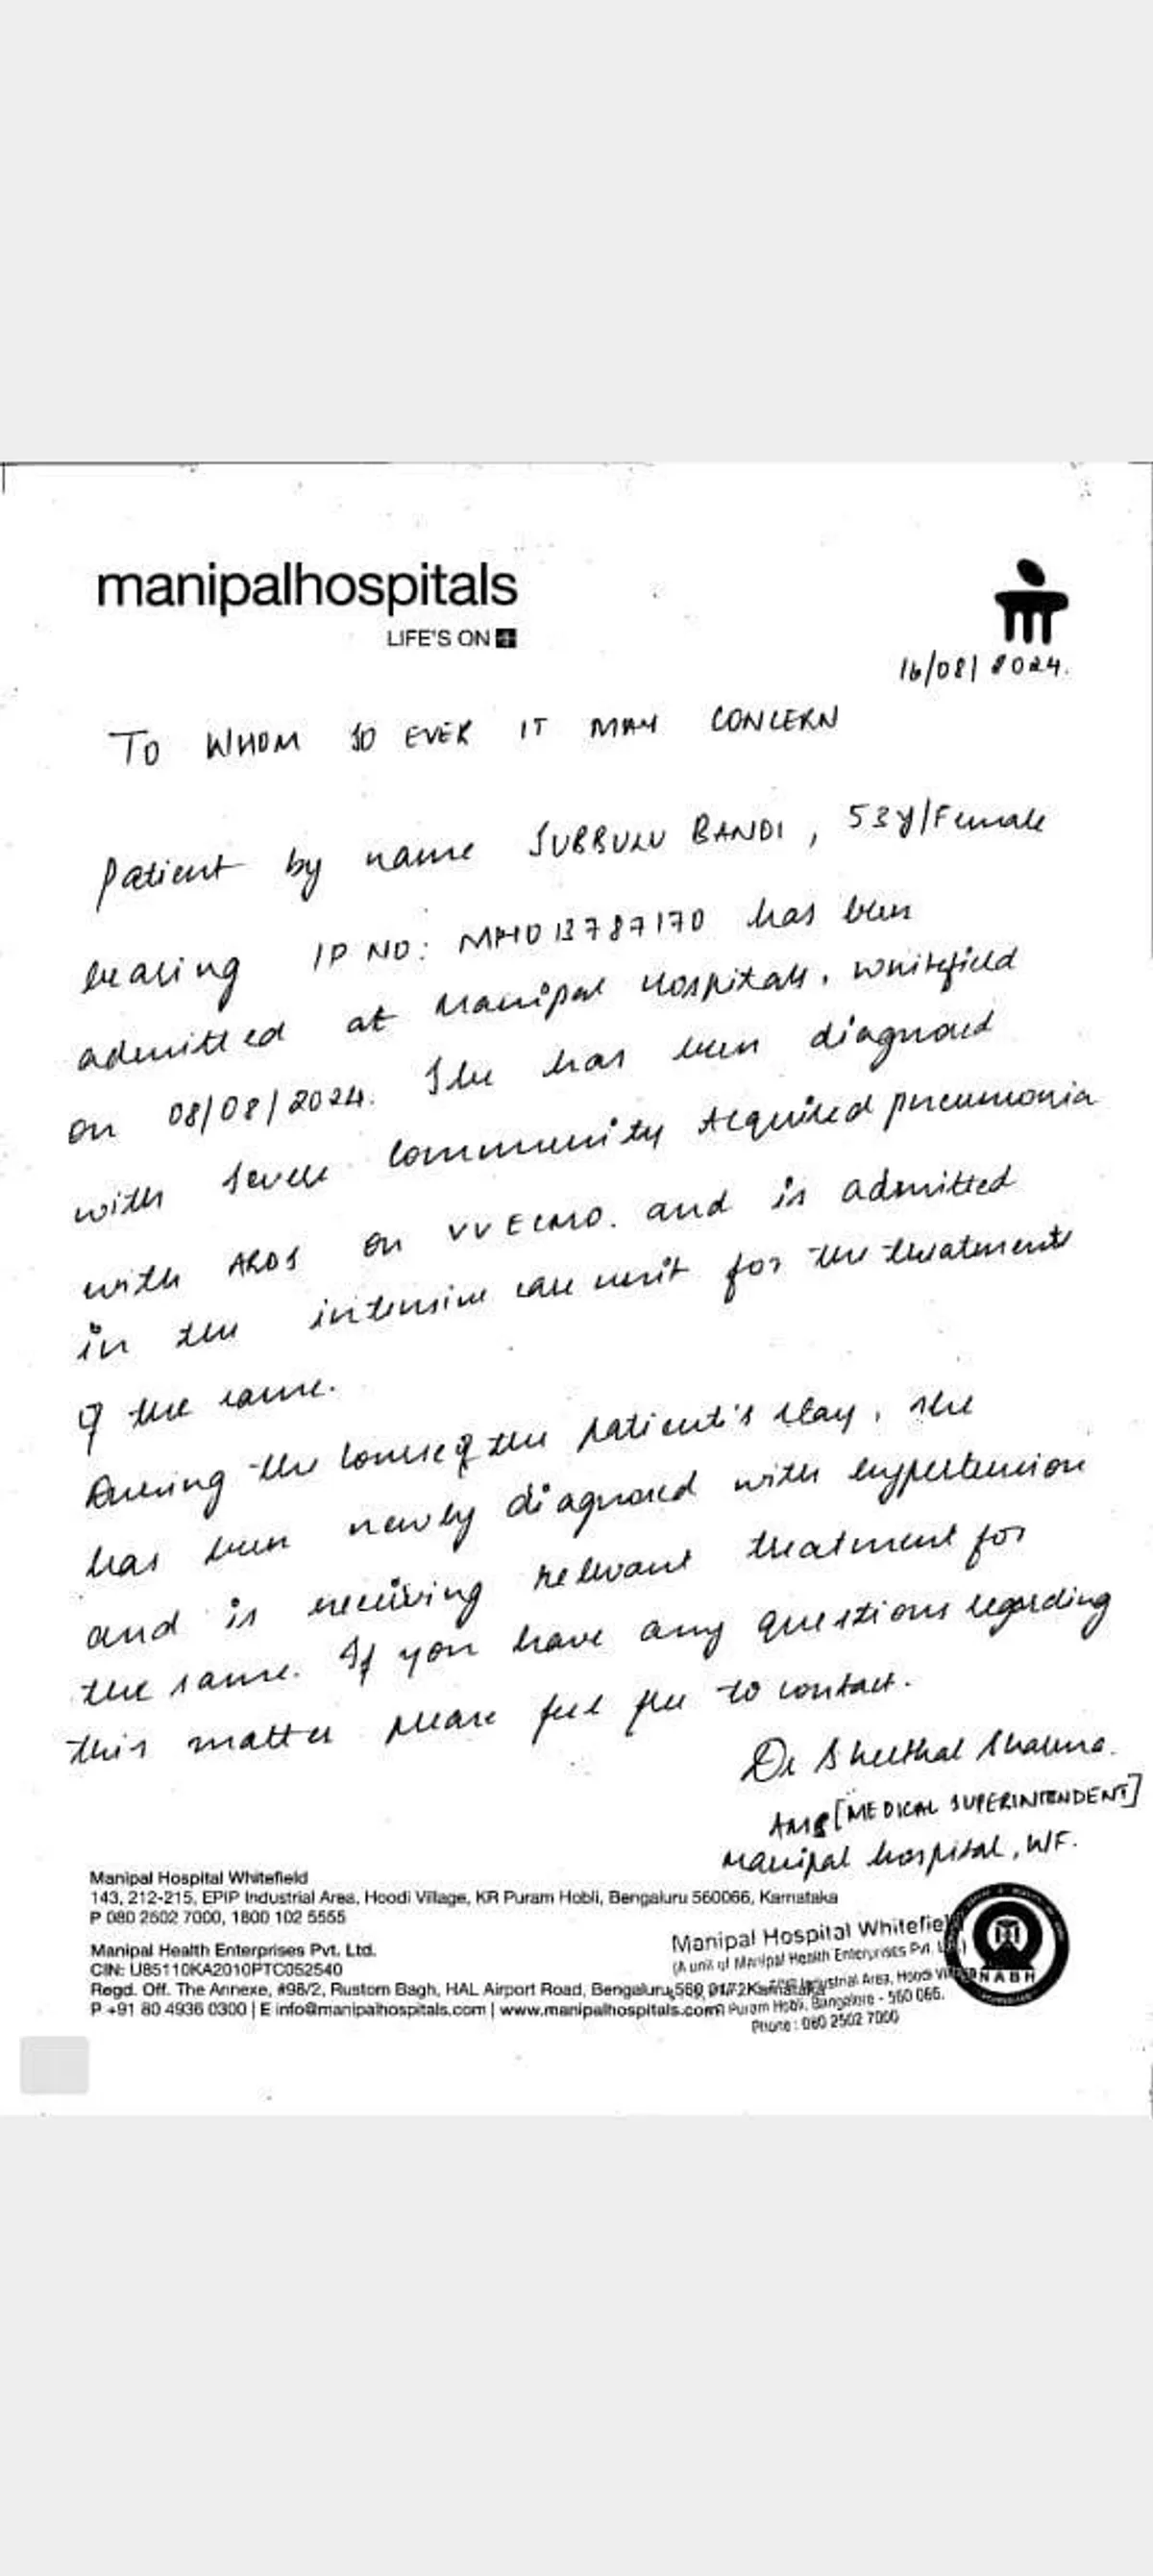 manipalhospitals
LIFE'S ON
16/08/2024.
TO WHOM SO EVER IT MAY CONCERN
Patient by name SUBBULU BANDI, 53y/Female
bearing IP NO: MH013787170 has been
admitted at Manipal Hospitals, Whitefield
on 08/08/2024. She has been diagnosed
with severe Community Acquired pneumonia
with ARDS on VV ECMO. and is admitted
in the intensive care unit for the treatments
of the same.
During the course of the patient's stay, she
has been newly diagnosed with hypertension
and is receiving relevant treatment for
the same. If you have any questions regarding
this matter please feel free to contact.
Dr Sheethal Sharma.
AMS [MEDICAL SUPERINTENDENT]
Manipal hospital, WF.
Manipal Hospital Whitefield
143, 212-215, EPIP Industrial Area, Hoodi Village, KR Puram Hobli, Bengaluru 560066, Karnataka
P 080 2502 7000, 1800 102 5555
Manipal Health Enterprises Pvt. Ltd.
CIN: U85110KA2010PTC052540
Regd. Off. The Annexe, #98/2, Rustom Bagh, HAL Airport Road, Bengaluru
P +91 80 4936 0300 | E info@manipalhospitals.com | www.manipalhospitals.com
Manipal Hospital Whitefiel
(A unit of Manipal Health Enterprises Pvt.
Industrial Area, Hoodi
Puram Hobli, Bangalore - 560 066.
Phone : 080 2502 7000
NABH